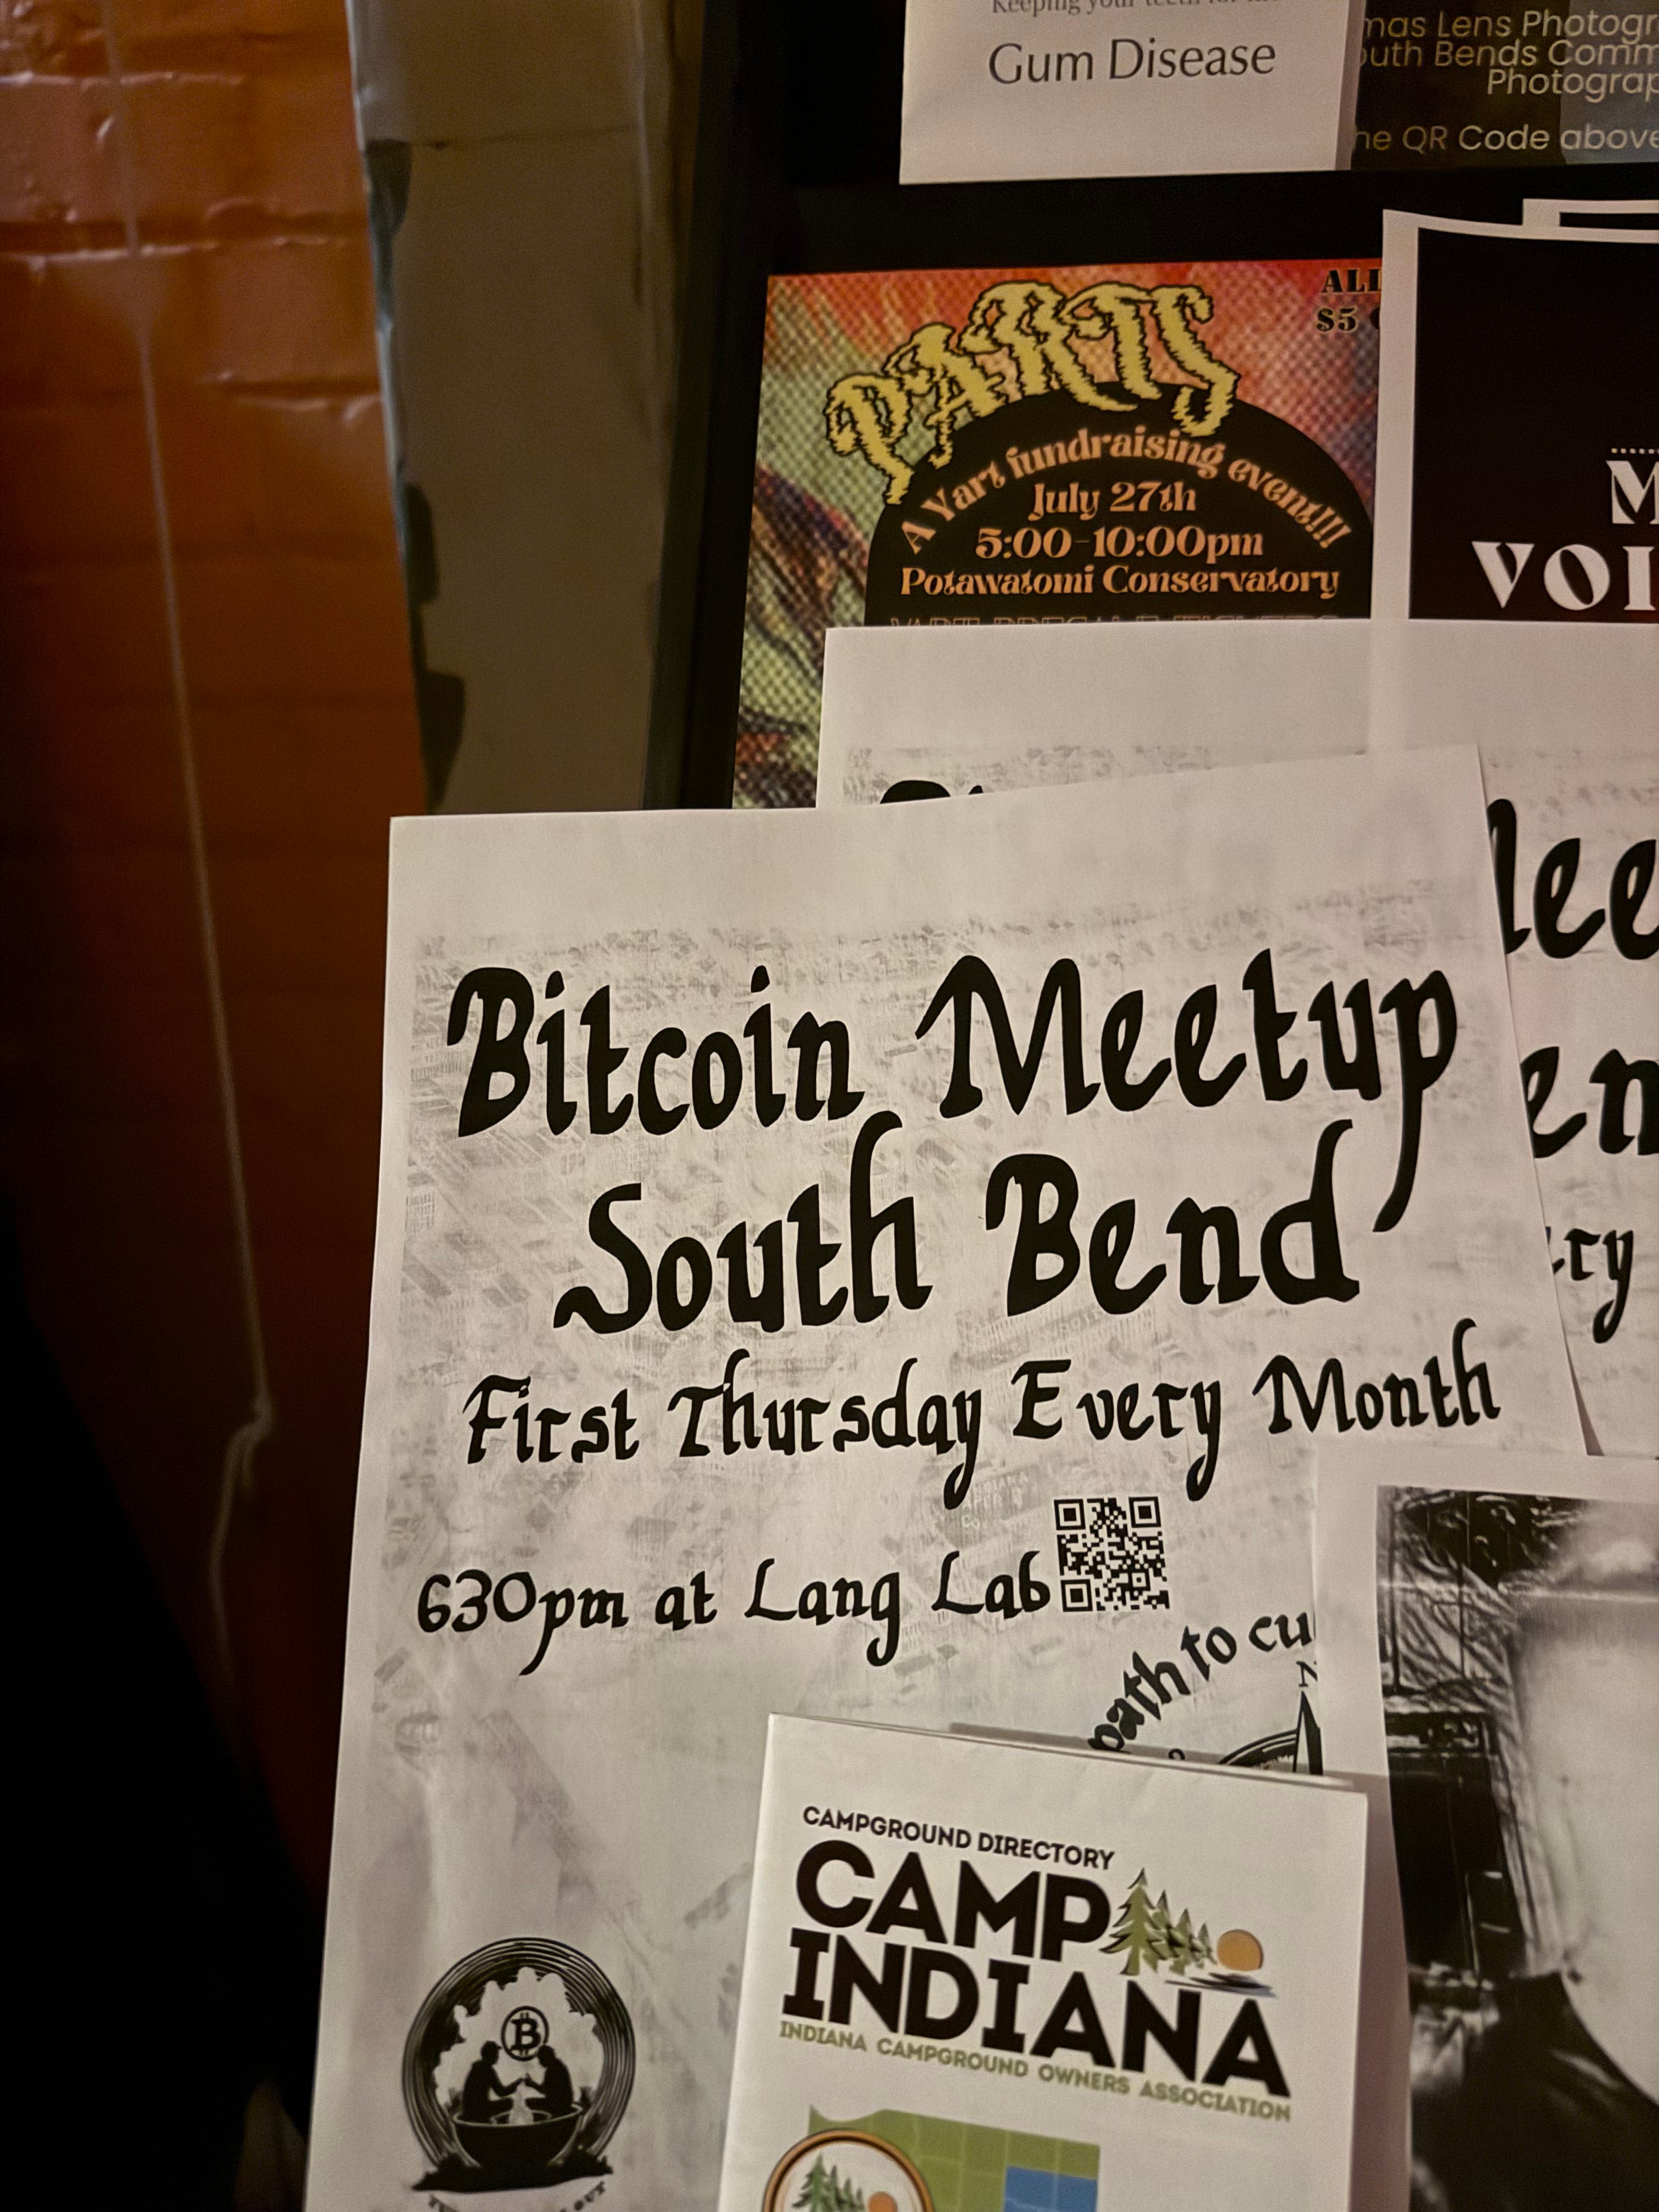 Keeping your teeth for
Gum Disease
mas Lens Photogr
outh Bends Comm
Photograp
he QR Code above
PARTS
ALL
$5
A Yart fundraising event!!!
July 27th
5:00-10:00pm
Potawatomi Conservatory
M
VOI
Bitcoin Meetup
South Bend
First Thursday Every Month
630pm at Lang Lab
path to cu
N
ee
en
ry
CAMPGROUND DIRECTORY
CAMP
INDIANA
INDIANA CAMPGROUND OWNERS ASSOCIATION
B
OUT